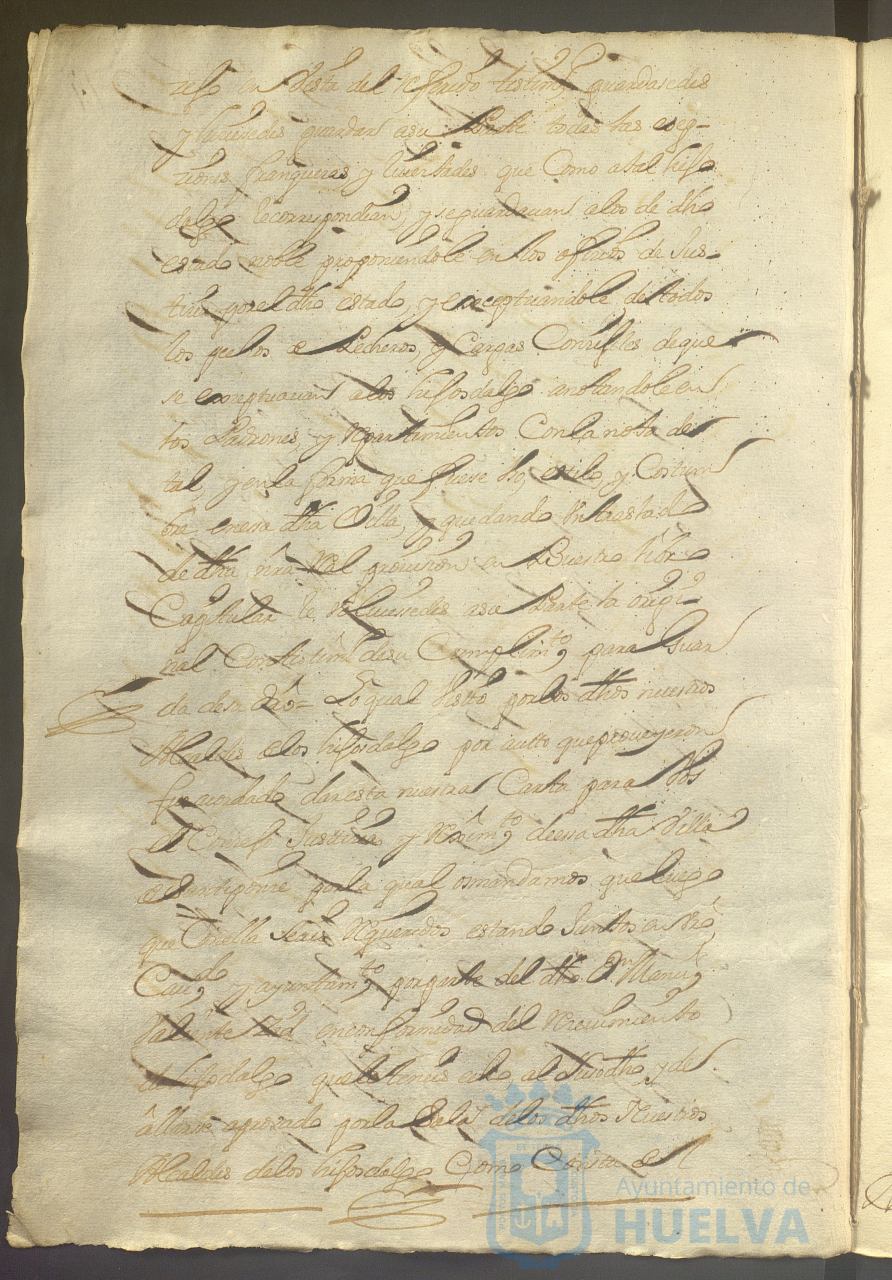 en Vista del referido testimº guardasedes
y hiciesedes guardar a su Parte todas las exep-
ziones franquezas y livertades que Como a tal hijo
dalgo le correspondian, y se guardavan a los de dho
estado noble proponiendole en los ofizios de Jus-
tizia por el dho estado, y exceptuandole de todos
los pechos e Pecheros, y Cargas Conzejiles de que
se exceptuavan a los hijosdalgo anotandole en
los Padrones, y Repartimientos Con la nota de
tal, y en la forma que fuese Uso, estilo, y Costum
bre en esa dha Villa, y quedando Un traslado
de dha nra Real provision en Vuestro libro
Capitular le volviesedes a su Parte la origi-
nal Con testimº de su Cumplimtº para Guar
da de su dro- Lo qual Visto por los dhos nuestros
Alcaldes de los hijosdalgo por autto que proveyeron
fue acordado dar esta nuestra Carta para Vos
el Conzejo Justizia y Reximtº de esa dha Villa
por la qual os mandamos que luego
que Con ella seais Requeridos estando Juntos en Vro
Cavdº y ayuntamtº por parte del dho Dn Manuel
en conformidad del Recivimiento
de hijodalgo que le teneis echo al Susodho, y de
allarse aprovado por la Sala de los dhos Nuestros
Alcaldes de los hijosdalgo Como Consta de
Ayuntamiento de
HUELVA